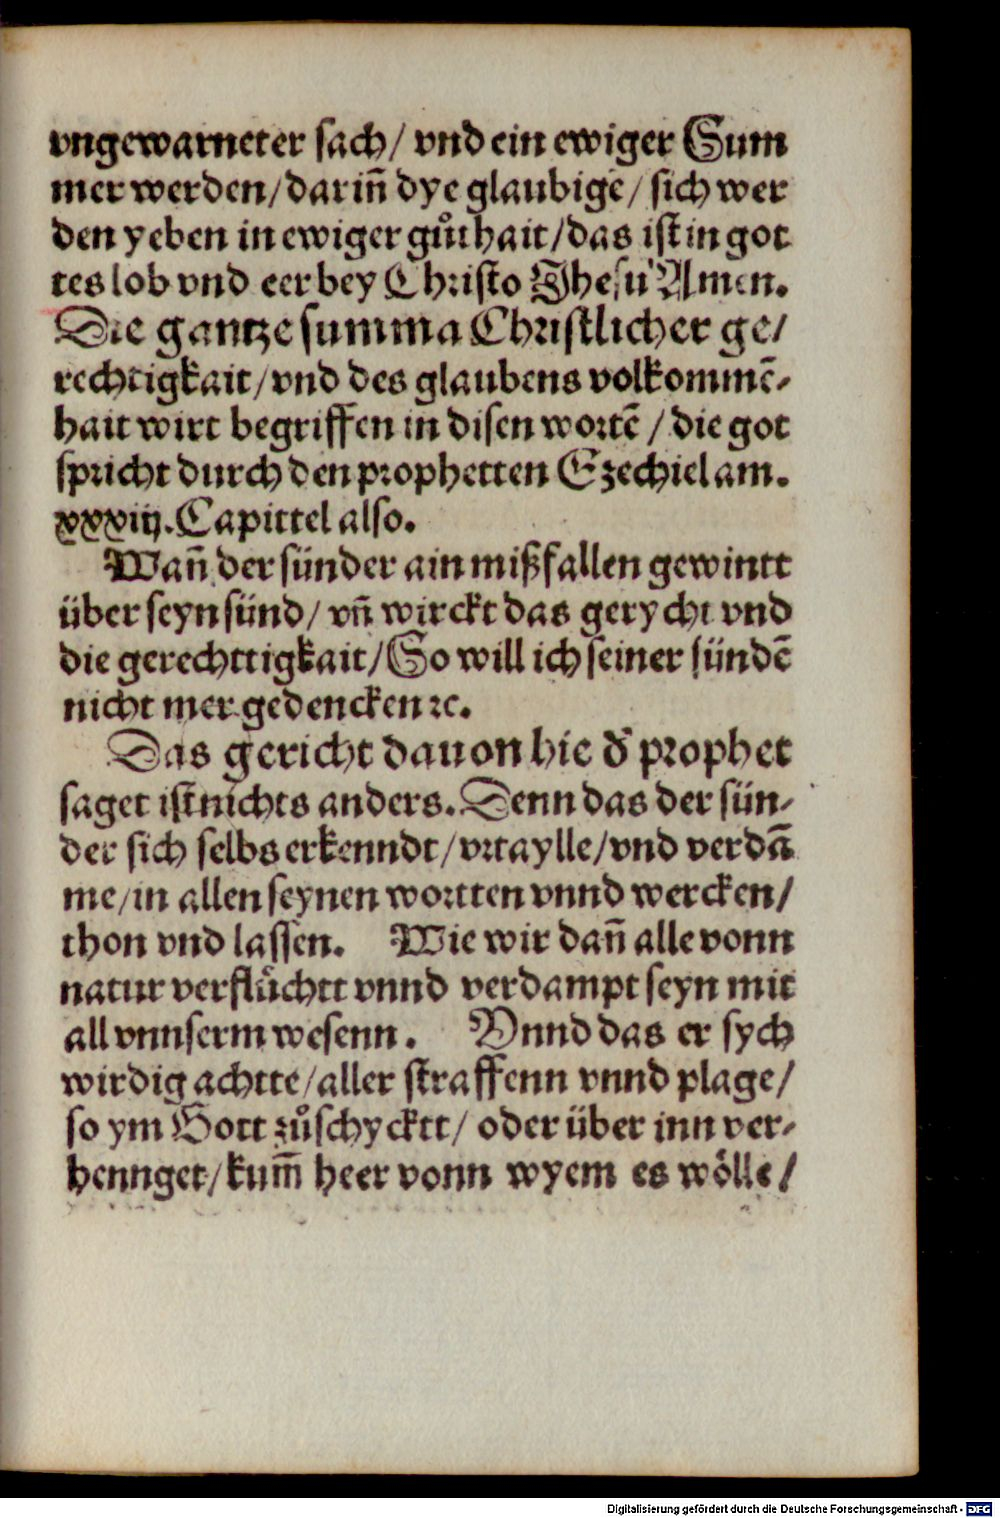 vngewarneter sach/ vnd ein ewiger Sum
mer werden/darin̄ dye glaubigē/ sich wer
den yeben in ewiger gůthait/das ist in got
tes lob vnd eer bey Christo Jhesu Amen.
Die gantze summa Christlicher ge/
rechtigkait/vnd des glaubens volkommē-
hait wirt begriffen in disen wortē/die got
spricht durch den prophetten Ezechiel am.
xxxiij.Capittel also.
Wan̄ der sünder ain mißfallen gewintt
über seyn sünd/ vn̄ wirckt das gerycht vnd
die gerechttigkait/So will ich seiner sündē
nicht mer gedencken ꝛc.
Das gericht dauon hie d̓ prophet
saget ist nichts anders. Denn das der sün-
der sich selbs erkenndt/vrtaylle/vnd verdā
me/in allen seynen wortten vnnd wercken/
thon vnd lassen. Wie wir dan̄ alle vonn
natur verflůchtt vnnd verdampt seyn mit
all vnnserm wesenn. Vnnd das er sych
wirdig achtte/aller straffenn vnnd plage/
so ym Gott zůschycktt/ oder über inn ver-
hennget/kum̄ heer vonn wyem es wölle/
Digitalisierung gefördert durch die Deutsche Forschungsgemeinschaft - DFG